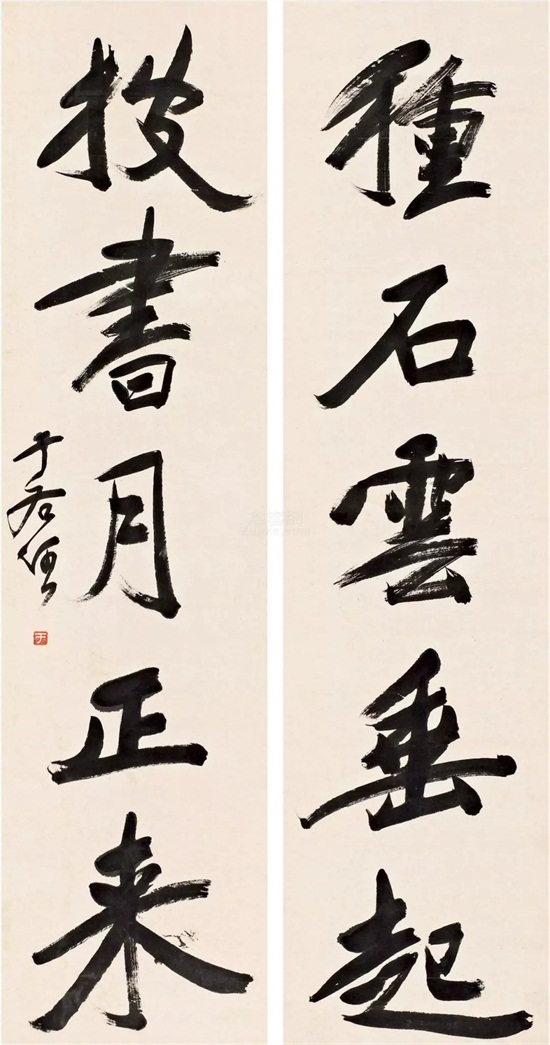 種石雲垂起
投書月正来
于右任
于